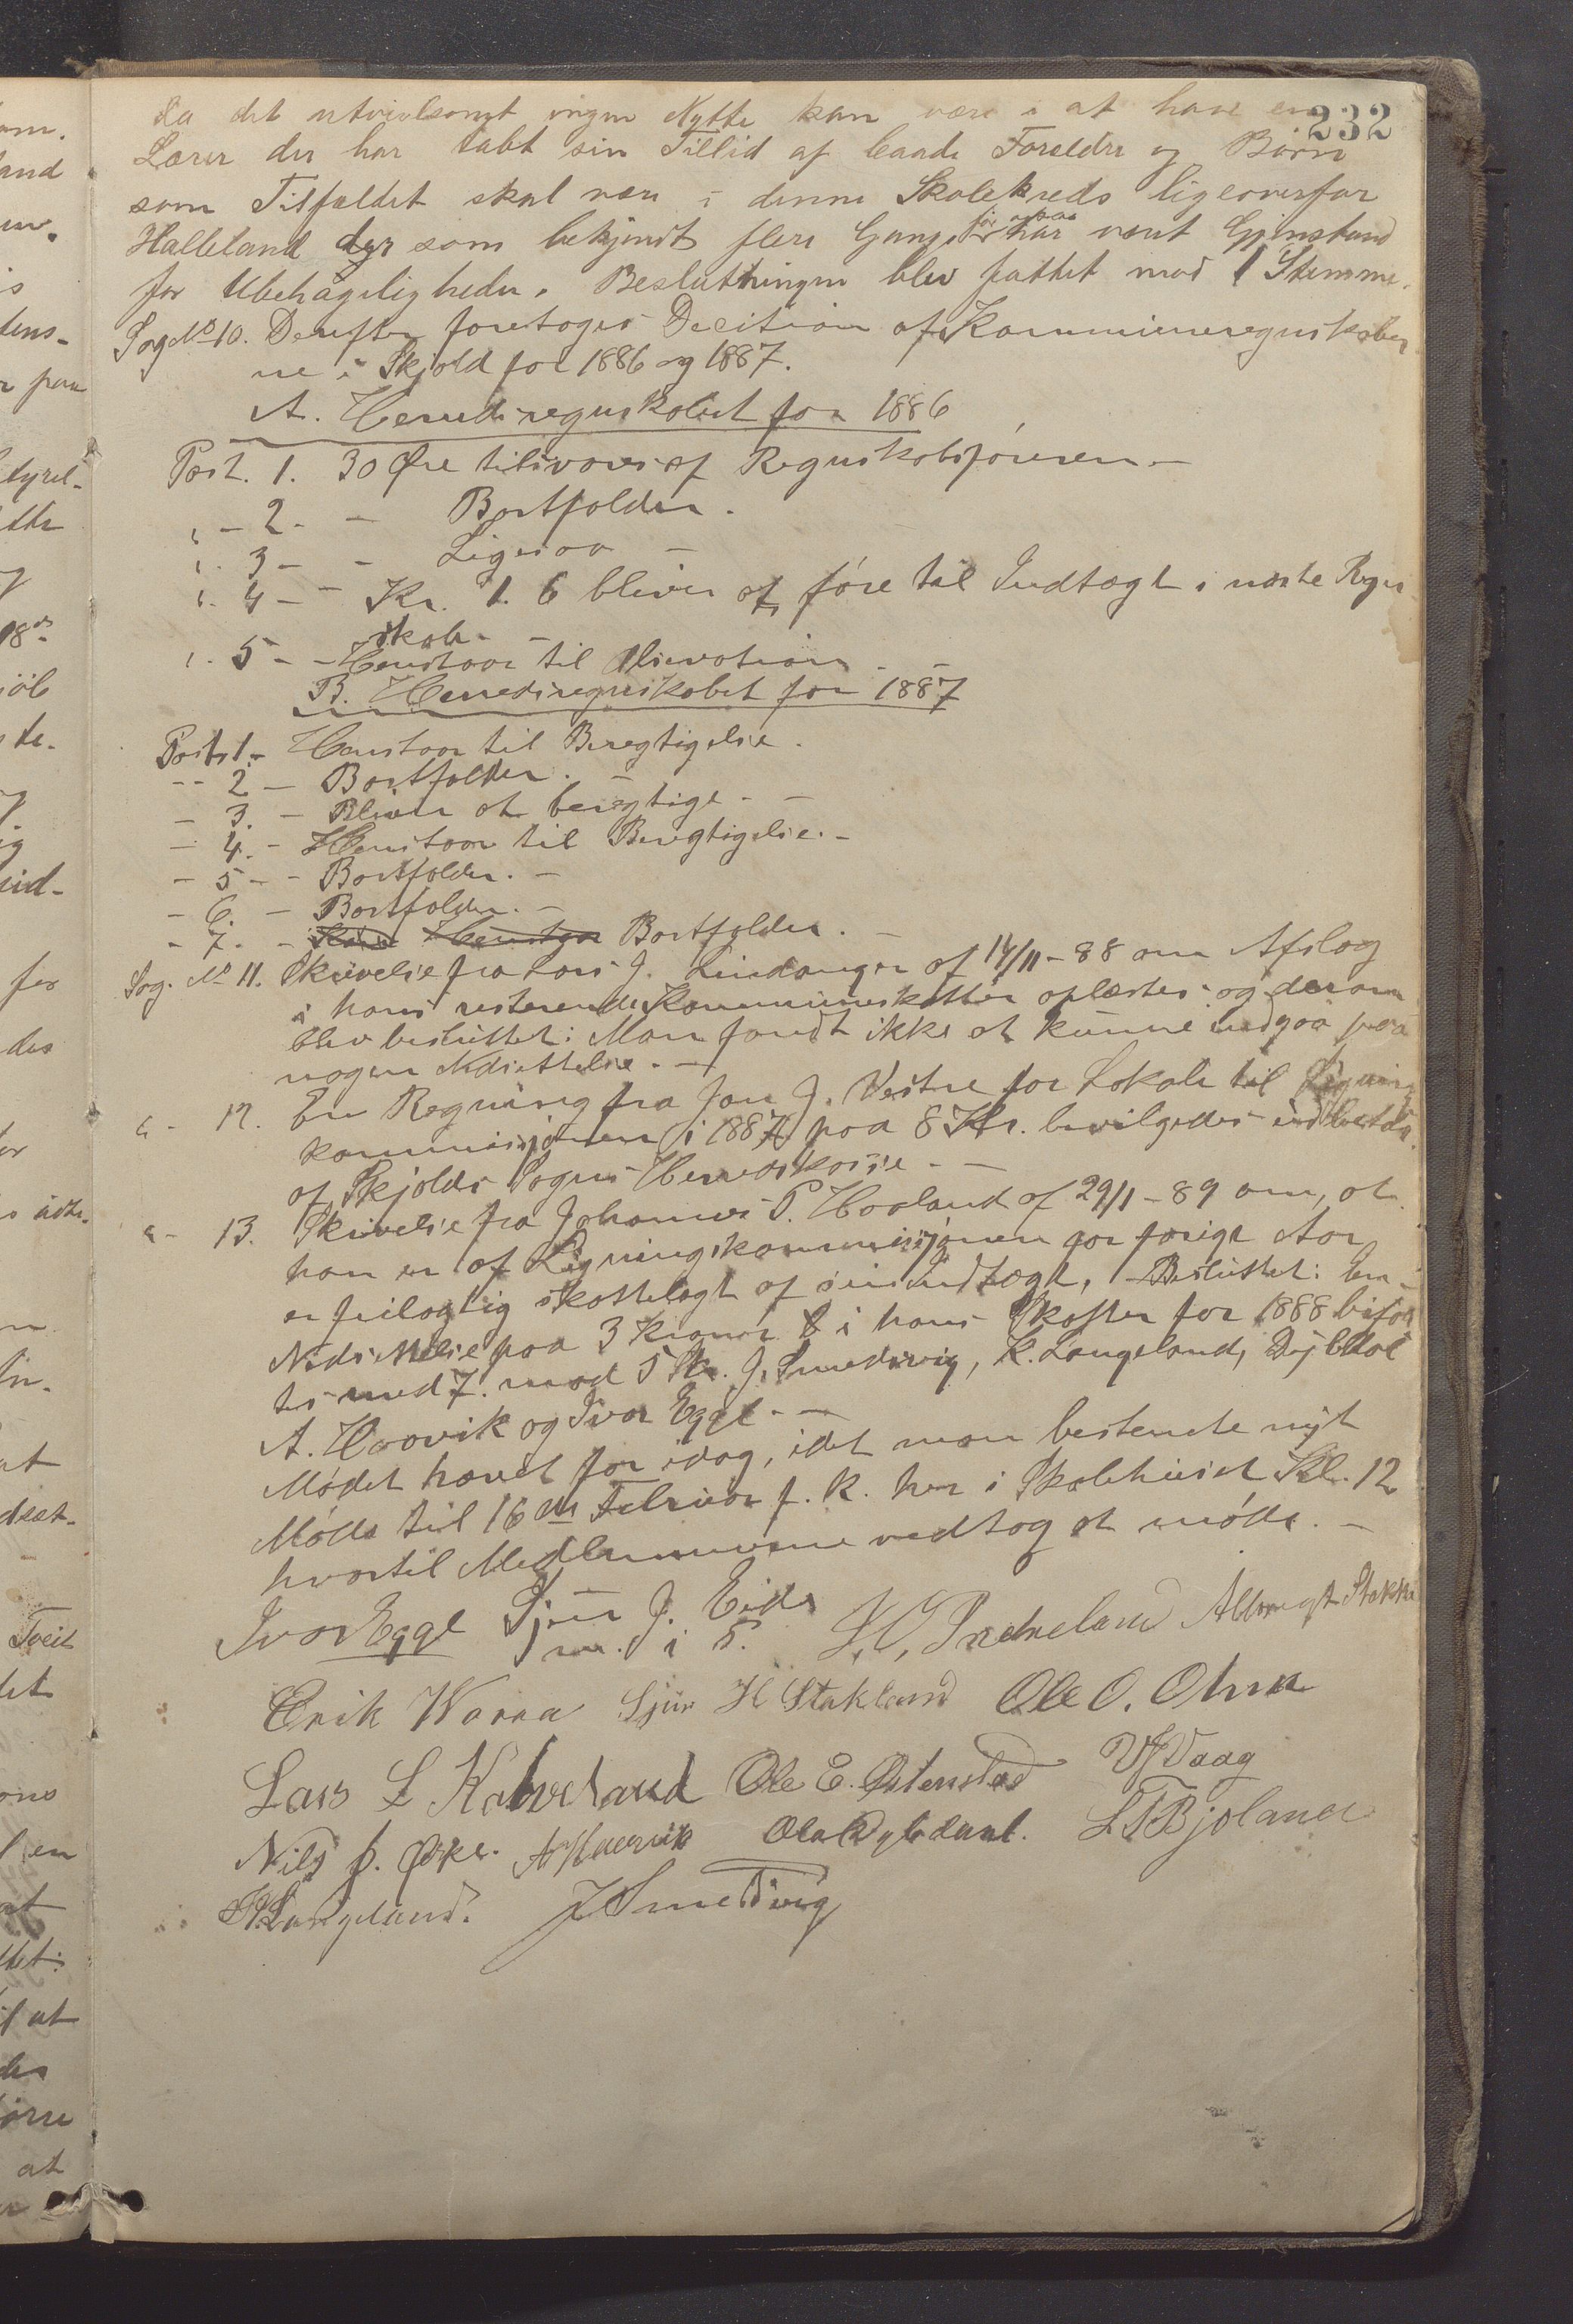 232
da det utvivlsomt ingen Nytte kan være i at have en
Lærer der har tabt sin Tillid af baade Forældre og Børn
som Tilfældet skal være i denne Skolekreds ligeoverfor
Halleland der som bekjendt flere Gange før har været Gjenstand
for Ubehageligheder. Beslutningen blev fattet mod 1 Stemme.
Sag No 10. Derefter foretoges Decition af Kommuneregnskaber
ne i Skjold for 1886 og 1887.
A. Herredsregnskabet for 1886
Post. 1. 30 Øre tilsvares af Regnskabsføreren.—
" - 2. — Bortfalder.
" 3 - - Ligesaa —
" 4 - - Kr. 1. 6 bliver at føre til Indtægt i næste Regn
skab. —
" 5 - - Henstaar til Observation. —
B. Herredsregnskabet for 1887
Posts 1. - Henstaar til Beregtigelse.
-- 2 - Bortfalder. —
- 3. - Bliver at beregtige. —
- 4. - Henstaar til Beregtigelse. -
- 5 - - Bortfalder. —
- 6. - Bortfalder. —
- 7. - Henstaar Bortfalder. —
Sag. No 11. Skrivelse fra Lars J. Lindanger af 14/11 - 88 om Afslag
i hans resterende Kommuneskatter oplæstes og derom
blev besluttet: Man fandt ikke at kunne indgaa paa
nogen Nedsættelse. —
" - 12. En Regning fra Jon J. Vestre for Lokale til Ligning
kommissjonen i 1887 paa 8 Kr. bevilgedes indbetalt
af Skjolds Sogns Herredskasse. —
" - 13. Skrivelse fra Johannes P. Haaland af 29/1 - 89 om, at
han er af Ligningskommissjonen for forige Aar
er feilagtig skattelagt af sin Indtægt, Besluttet: en
Nedsættelse paa 3 Kroner i hans Skatter for 1888 bifal
tes med 7. mod 5 St. J. Smedsvig, K. Langeland, Dybdal
A. Haavik og Ivar Egge. —
Mødet hævet for idag, idet man bestemte nyt
Møde til 16de Februar f. k. her i Skolehuset Kl. 12
hvortil Medlemmerne vedtog at møde. —
Ivar Egge Sjur J. Eide Albregt Stakke
m. i S.
Erik Warra Sjur H Stakland Ole O.
Lars L Kalveland Ole E. Østenstad V Vaag
Nils J. Øike. A Haavik Ola Dybdahl. L T Bjoland
K Langeland. J Smedsvig